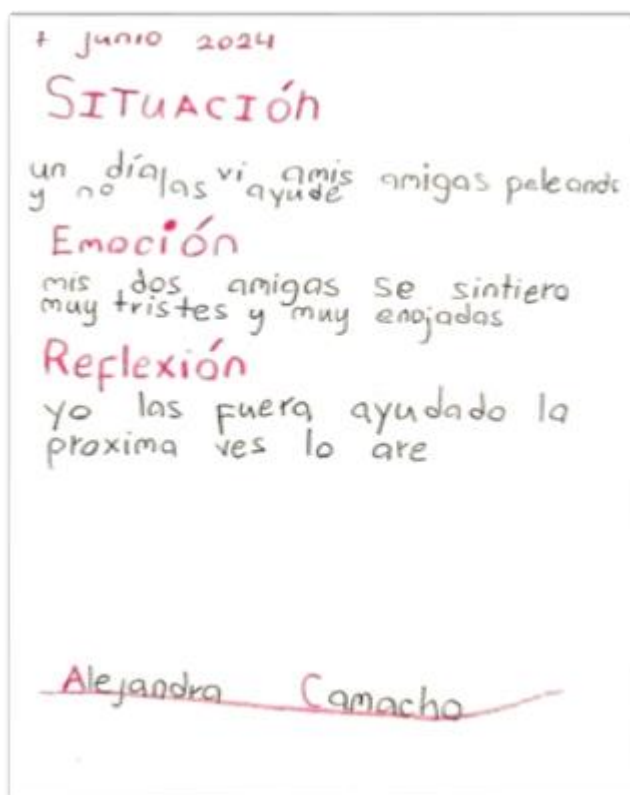 7 junio 2024
SITUACIÓn
un día las vi amis amigas peleando
y no ayudé
Emoción
mis dos amigas se sintiero
muy tristes y muy enojadas
Reflexión
yo las fuera ayudado la
proxima ves lo are
Alejandra Camacho